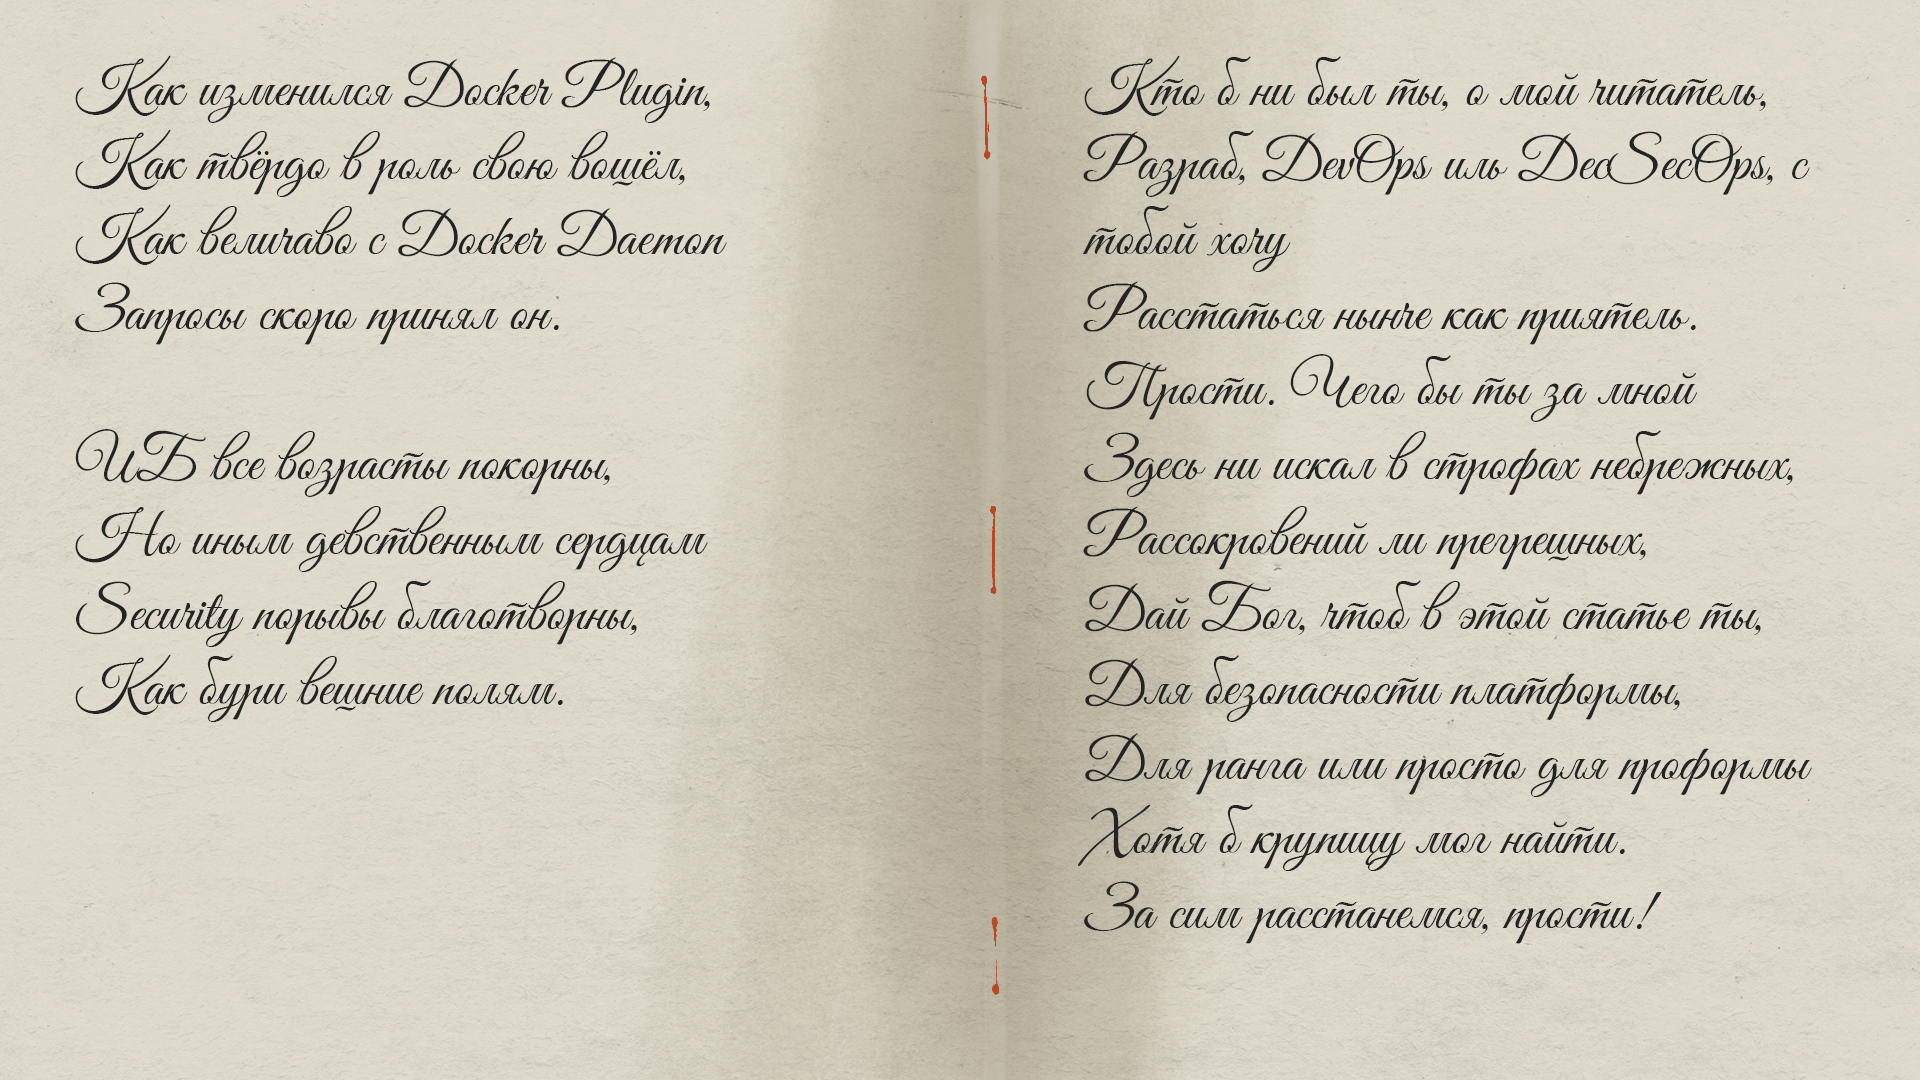 Как изменился Docker Plugin,
Как твёрдо в роль свою вошёл,
Как величаво с Docker Daemon
Запросы скоро принял он.
ИБ все возрасты покорны,
Но иным девственным сердцам
Security порывы благотворны,
Как бури вешние полям.
Кто б ни был ты, о мой читатель,
Разраб, DevOps иль DecSecOps, с
тобой хочу
Расстаться нынче как приятель.
Прости. Чего бы ты за мной
Здесь ни искал в строфах небрежных,
Рассокровений ли прегрешных,
Дай Бог, чтоб в этой статье ты,
Для безопасности платформы,
Для ранга или просто для проформы
Хотя б крупицу мог найти.
За сим расстанемся, прости!